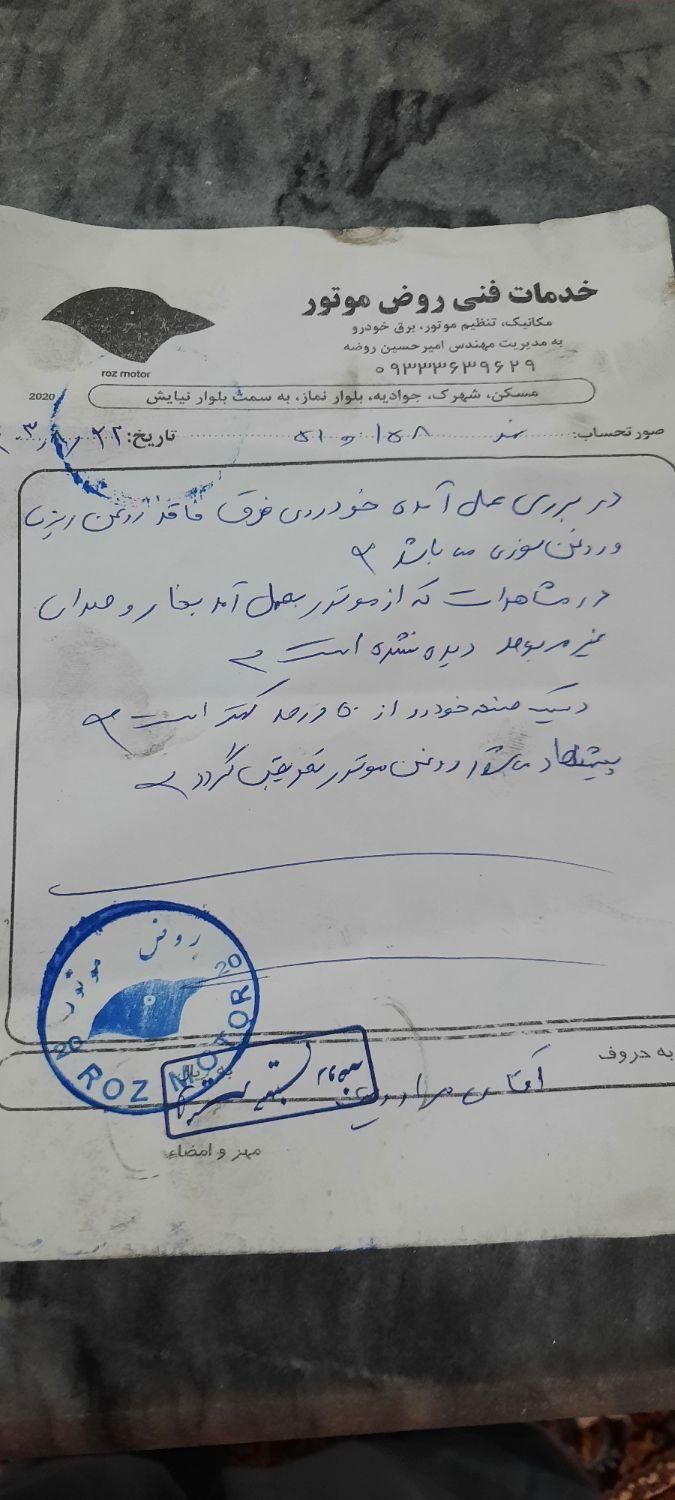 خدمات فنی روض موتور
مکانیک، تنظیم موتور، برق خودرو
به مدیریت مهندس امیرحسین روضه
۰۹۳۳۳۶۳۹۶۲۹
roz motor
2020
مسکن، شهرک، جوادیه، بلوار نماز، به سمت بلوار نیایش
صورتحساب:
تاریخ: ۰۳/۸/۲۲
در بررسی عمل آمده خودروی فوق فاقد روغن ریزی
و روغن سوزی می باشد
در مشاهدات که از موتور بعمل آمد بخار و صدای
غیر مربوط دیده نشده است
دیسک صفحه خودرو از ۵۰ درصد کمتر است
پیشنهاد می شود روغن موتور تعویض گردد
روض موتور
20 20
ROZ MOTOR
به حروف
آقای
به ریال
مهر و امضاء